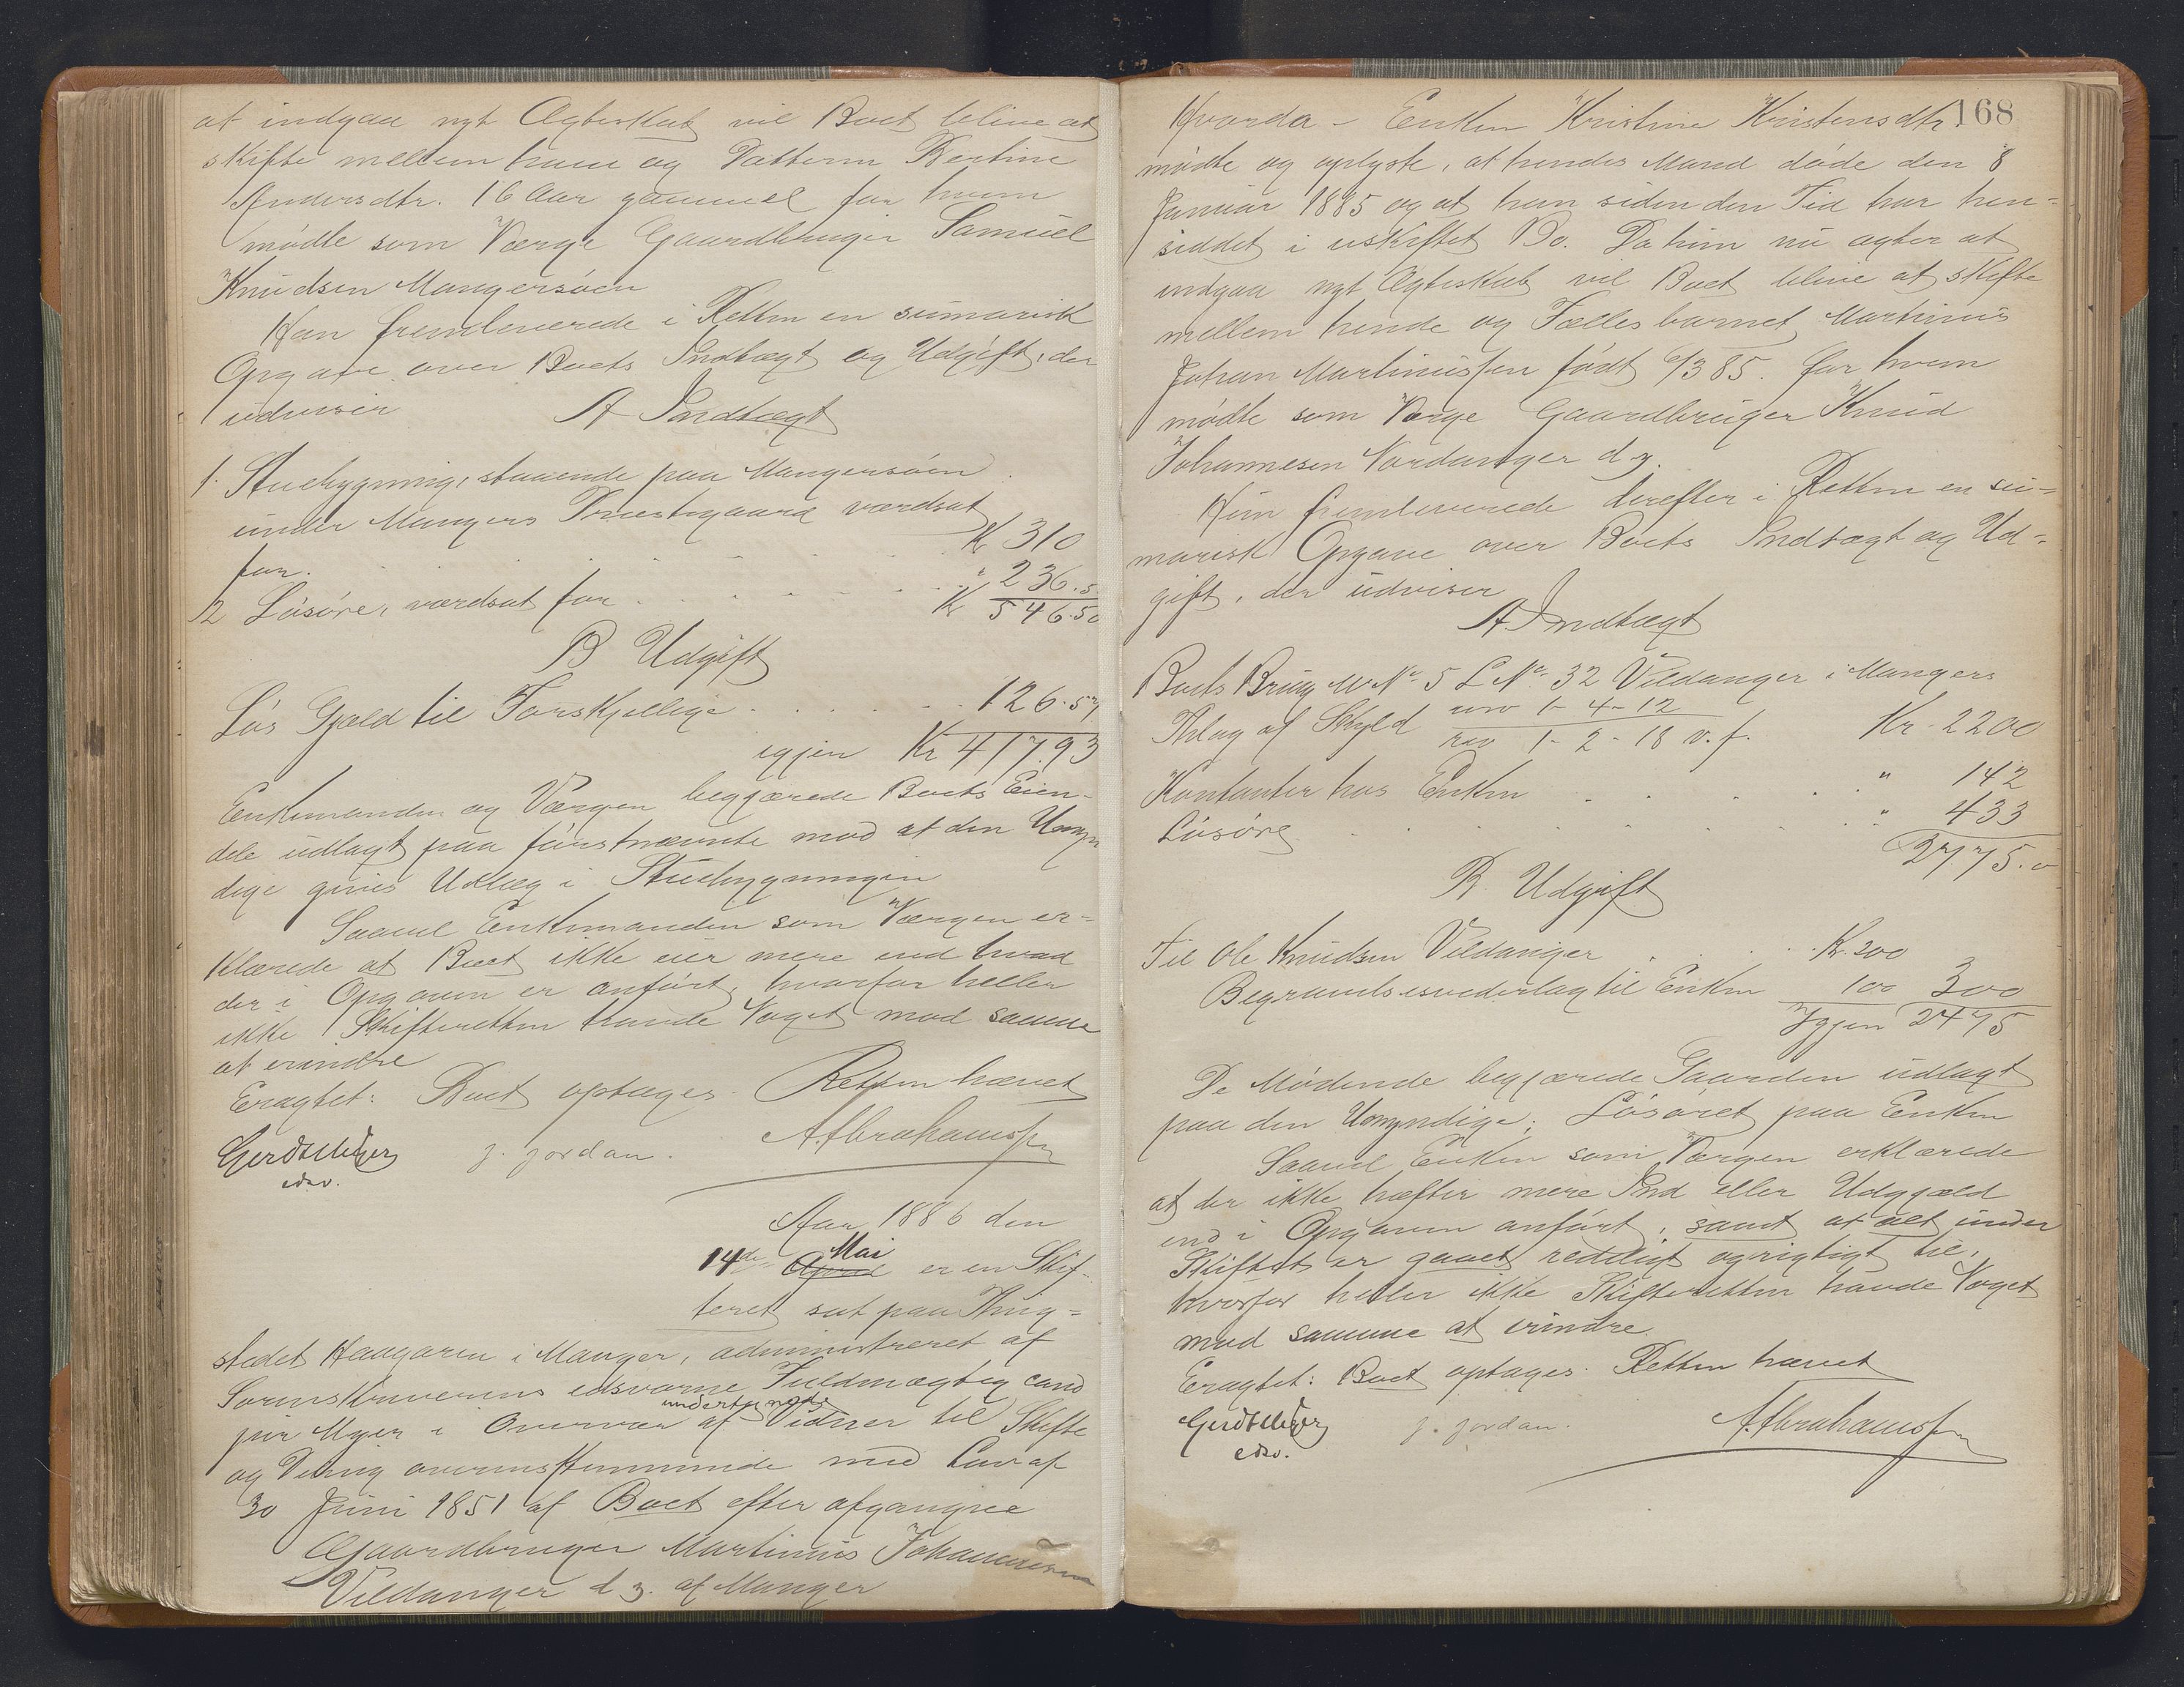 at indgaa nyt Ægteskab vil Boet blive at
skifte mellem ham og Datteren Bertine
Andersdtr. 16 Aar gammel for hvem
mødte som Værge Gaardbruger Samuel
Knudsen Mangersøen
Han fremleverede i Retten en sumarisk
Opgave over Boets Indtægt og Udgift, der
udviser A Indtægt
1. Stuebygning, staaende paa Mangersøen
under Mangers Præstegaard værdsat
for. Kr 310
2 Løsøre, værdsat for " 236.5
Kr 546.50
B Udgift
Løs Gjæld til Forskjellige 126.57
igjen Kr 417.93
Enkemanden og Værgen begjærede Boets Eien-
dele udlagt paa førstnævnte mod at den Umyn
dige gives Udlæg i Stuebygningen
Saavel Enkemanden som Værgen er=
klærede at Boet ikke eier mere end hvad
der i Opgaven er anført, hvorfor heller
ikke Skifteretten havde Noget mod samme
at erindre
Eragtet: Boet optages. Retten hævet
Gerdt Meyer J. Jordan. A. Abrahamssen
edsv.
Aar 1886 den
14de Mai
April er en Skif-
teret sat paa Thing=
stedet Haagaren i Manger, administreret af
Sorenskriverens edsvorne Fuldmægtig cand
undertegnede
jur Myer i Overvær af Vidner til Skifte
og Deling overensstemmende med Lov af
30 Juni 1851 af Boet efter afgangne
Gaardbruger Martinus Johannesen
Vildanger d. y. af Manger
168
Hvorda - Enken Kristine Kristensdtr.
mødte og oplyste, at hendes Mand døde den 8
Januar 1885 og at hun siden den Tid har hen=
siddet i uskiftet Bo. Da hun nu agter at
indgaa nyt Ægteskab vil Boet blive at skifte
mellem hende og Fællesbarnet Martinus
Johan Martinussen født 6/3 85. for hvem
mødte som Værge Gaardbruger Knud
Johannesen Nordanger d. y.
Hun fremleverede derefter i Retten en su=
marisk Opgave over Boets Indtægt og Ud=
gift, der udviser
A Indtægt
Boets Brug M No 5 L No 32 Vildanger i Mangers
Thlag af Skyld urv 1- 4- 12
rev 1- 2- 18 v. f. Kr. 2200
Kontanter hos Enken " 142
Løsøre " 433
2775.0
B. Udgift
Til Ole Knudsen Vildanger Kr. 200
Begravelsesvederlag til Enken 100 300
Igjen 2475
De Mødende begjærede Gaarden udlagt
paa den Umyndige; Løsøret paa Enken
Saavel Enken som Værgen erklærede
at der ikke hæfter mere Ind eller Udgjæld
end i Opgaven anført, samt at alt under
Skiftet er gaaet redeligt og rigtigt til,
hvorfor heller ikke Skifteretten havde Noget
mod samme at erindre.
Eragtet: Boet optages. Retten hævet
Gerdt Meyer J. Jordan. A. Abrahamssen
edsv.